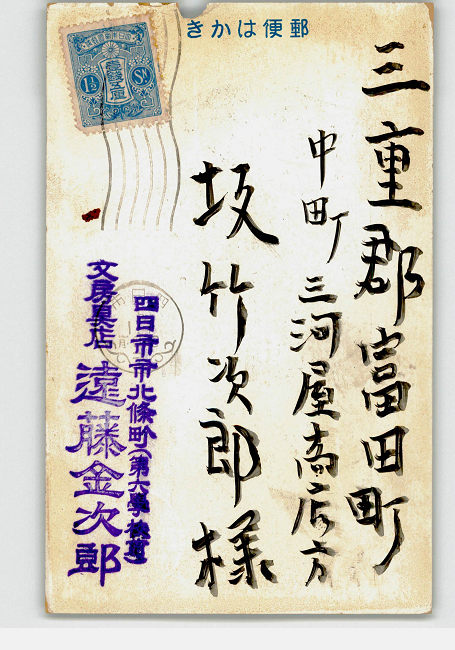 きかは便郵
1½ Sn
三重郡富田町
中町三河屋商店方
坂竹次郎様
四日市市北條町(第六學校前)
文房具店
遠藤金次郎